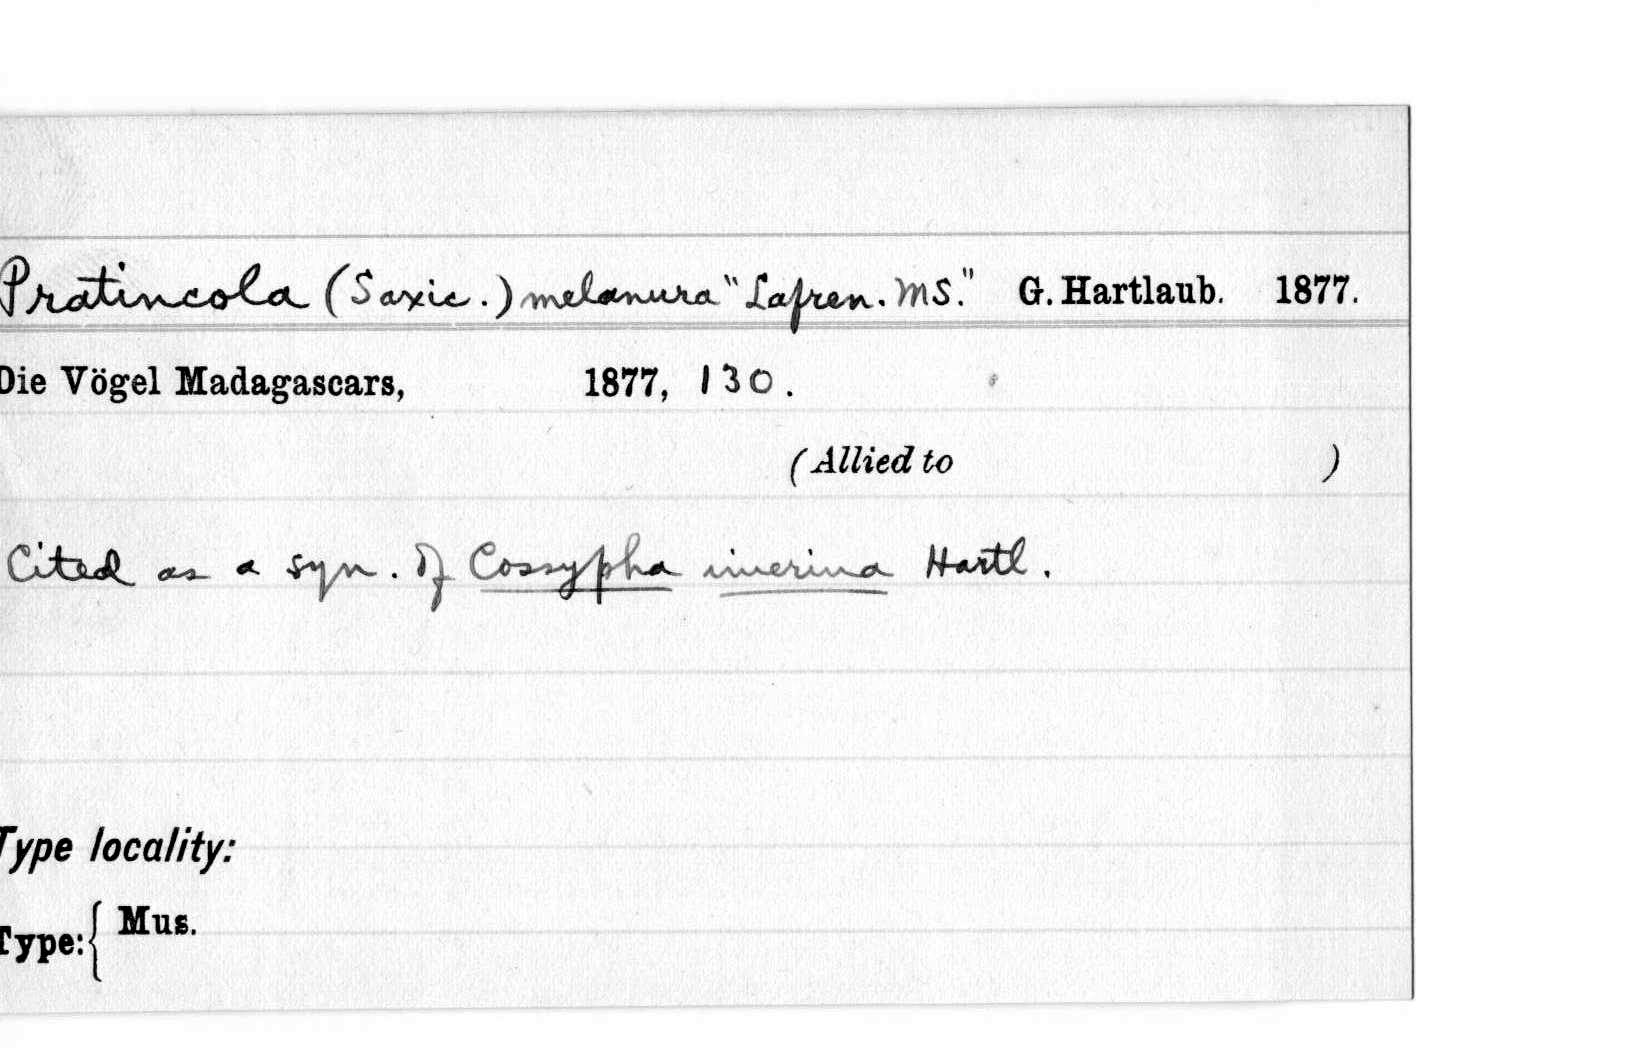 Pratincola (Saxic.) melanura "Lafren. MS." G. Hartlaub. 1877.
Die Vögel Madagascars, 1877, 130.
(Allied to )
Cited as a syn. of Cossypha imerina Hartl.
Type locality:
Type: { Mus.